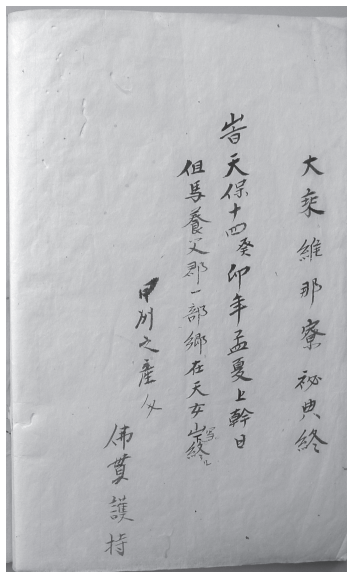 大乘維那寮祕典終
旹天保十四癸卯年孟夏上幹日
但馬養父郡一部郷在天女山写終
甲州之産
佛貫護持